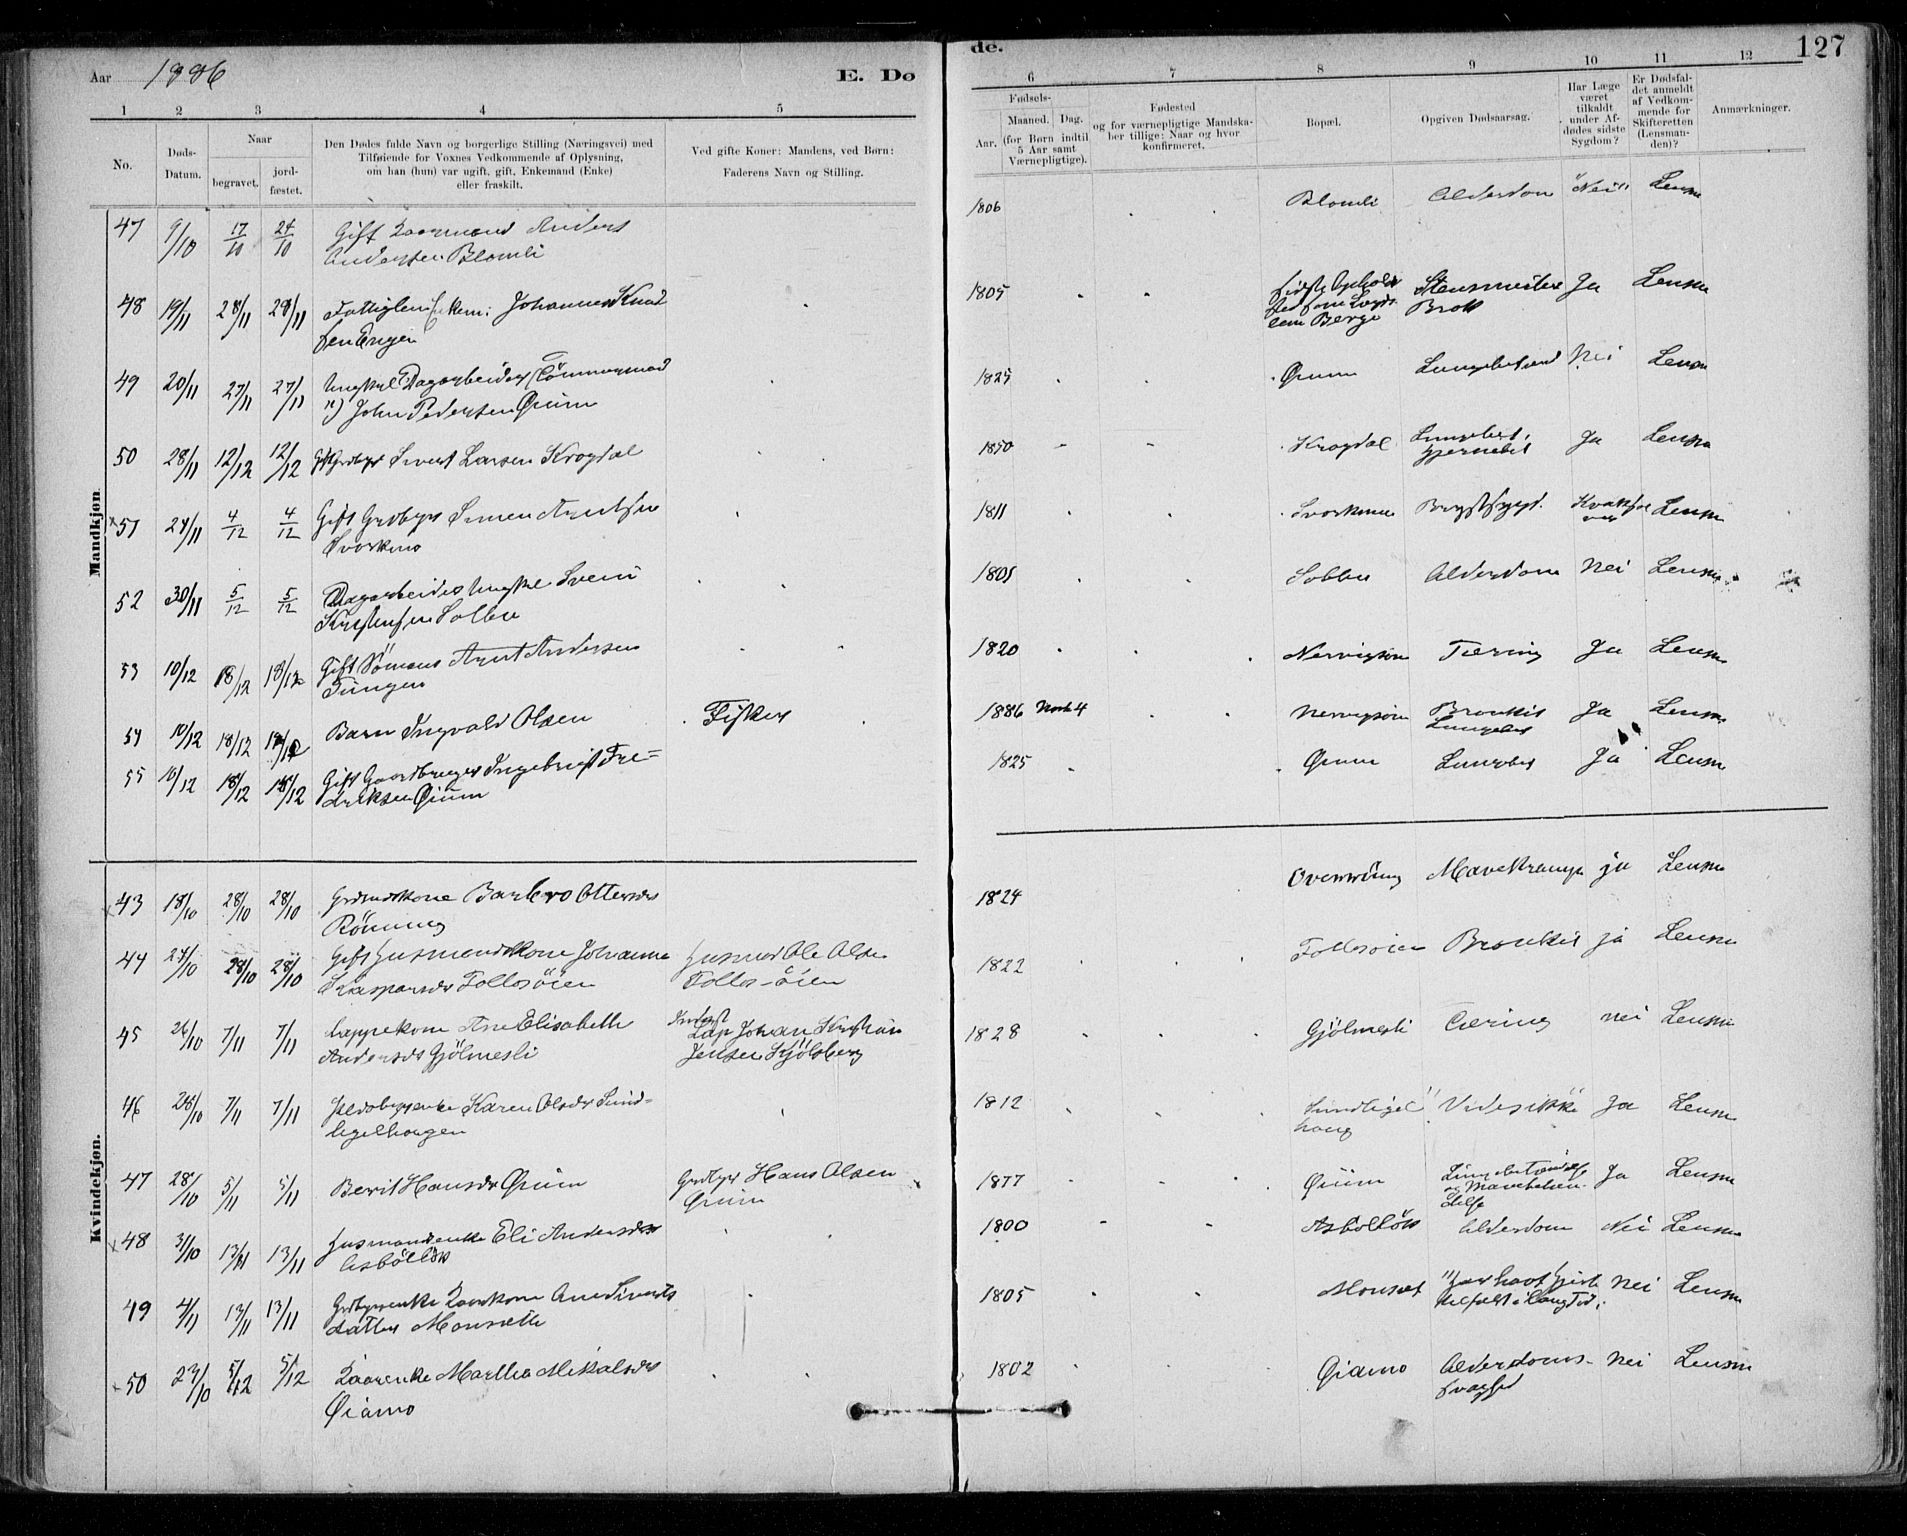 Aar 1886
E. Dø
de.
127
1 2 3 4 5 6 7 8 9 10 11 12
No.
Døds-
Datum.
Naar
begravet.
jord-
fæstet.
Den Dødes fulde Navn og borgerlige Stilling (Næringsvei) med
Tilføiende for Voxnes Vedkommende af Oplysning,
om han (hun) var ugift, gift, Enkemand (Enke)
eller fraskilt.
Ved gifte Koner: Mandens, ved Børn:
Faderens Navn og Stilling.
Fødsels-
Aar.
Maaned. Dag.
(for Børn indtil
5 Aar samt
Værnepligtige).
Fødested
og for værnepligtige Mandska-
ber tillige: Naar og hvor
konfirmeret.
Bopæl.
Opgiven Dødsaarsag.
Har Læge
været
tilkaldt
under Af-
dødes sidste
Sygdom?
Er Dødsfal-
det anmeldt
af Vedkom-
mende for
Skifteretten
(Lensman-
den)?
Anmærkninger.
Mandkjøn.
47 9/10 17/10 24/10 Gift Kaarmand Anders 1806 Blomli Alderdom "Nei" Lensm
Andersen Blomli
48 19/11 28/11 28/11 Fattiglem Enkem: Johannes Knud 1805 Ja Lensm
sen Engen Berge Brok
49 20/11 27/11 27/11 Ungkarl Dagarbeider (Tömmermand 1825 Øium Lungebetænd Nei Lensm
") John Pedersen Øium
50 28/11 12/12 12/12 Gift Grdbgr Sivert Larsen Krogdal 1850 Krogdal Lungebet. Ja Lensm
hjernebet
× 51 24/11 4/12 4/12 Gift Grdbgr Simen Arntsen 1811 Svorkmo Brystsygd. Lensm
Svorkmo
52 30/11 5/12 5/12 Dagarbeider Ungkarl Svend 1801 Solbu Alderdom Nei Lensm
Kristensen Solbu
53 10/12 18/12 18/12 Gift Sömand Arnt Andersen 1820 Nervigsøra Tæring Ja Lensm
Tungen
54 10/12 18/12 18/12 Barn Ingvald Olsen Fisker 1886 Marts 4 Nervigsøra Bronkit Ja Lensm
Lungebet
55 10/12 18/12 18/12 Gift Gaardbruger Ingebrigt Fre= 1825 Øium Lungebet Ja Lensm
driksen Øium
Kvindekjøn.
× 43 18/10 28/10 28/10 Grdmdskone Barbro Ottersdr 1824 Mavekrampe ja Lensm
Rönning
44 24/10 28/10 28/10 Gift Husmandskone Johanna Husmd Ole Olsen 1822 Follosøien Bronkit ja Lensm
Kaspersdr Follosöien Follos-öien
45 26/10 7/11 7/11 Lappekone Ane Elisabeth Lap Johan Kristian 1828 Gjölmesli Tæring nei Lensm
Andersdr Gjölmesli Jensen Kjölsberg
46 28/10 7/11 7/11 Karen Olsdr Sund- 1812 Sundligel Vides ikke Ja Lensm
ligelhaugen haug
47 28/10 5/11 5/11 Berit Hansdr Øium Grdbgr Hans Olsen 1877 Øium Ja Lensm
Øium
× 48 31/10 13/11 13/11 Husmandsenke Eli Andersdr 1800 Asbölløk Alderdom Nei Lensm
Asbölløk
49 4/11 13/11 13/11 Grdbgrenke Kaarkone Ane Siverts 1805 Monset "Har havt Gigt Nei Lensm
datter Monseth i lang Tid.
× 50 23/10 5/12 5/12 Kaarenke Marthe Mikalsdr 1802 Øiamo Alderdoms- Nei Lensm
Øiamo svaghed